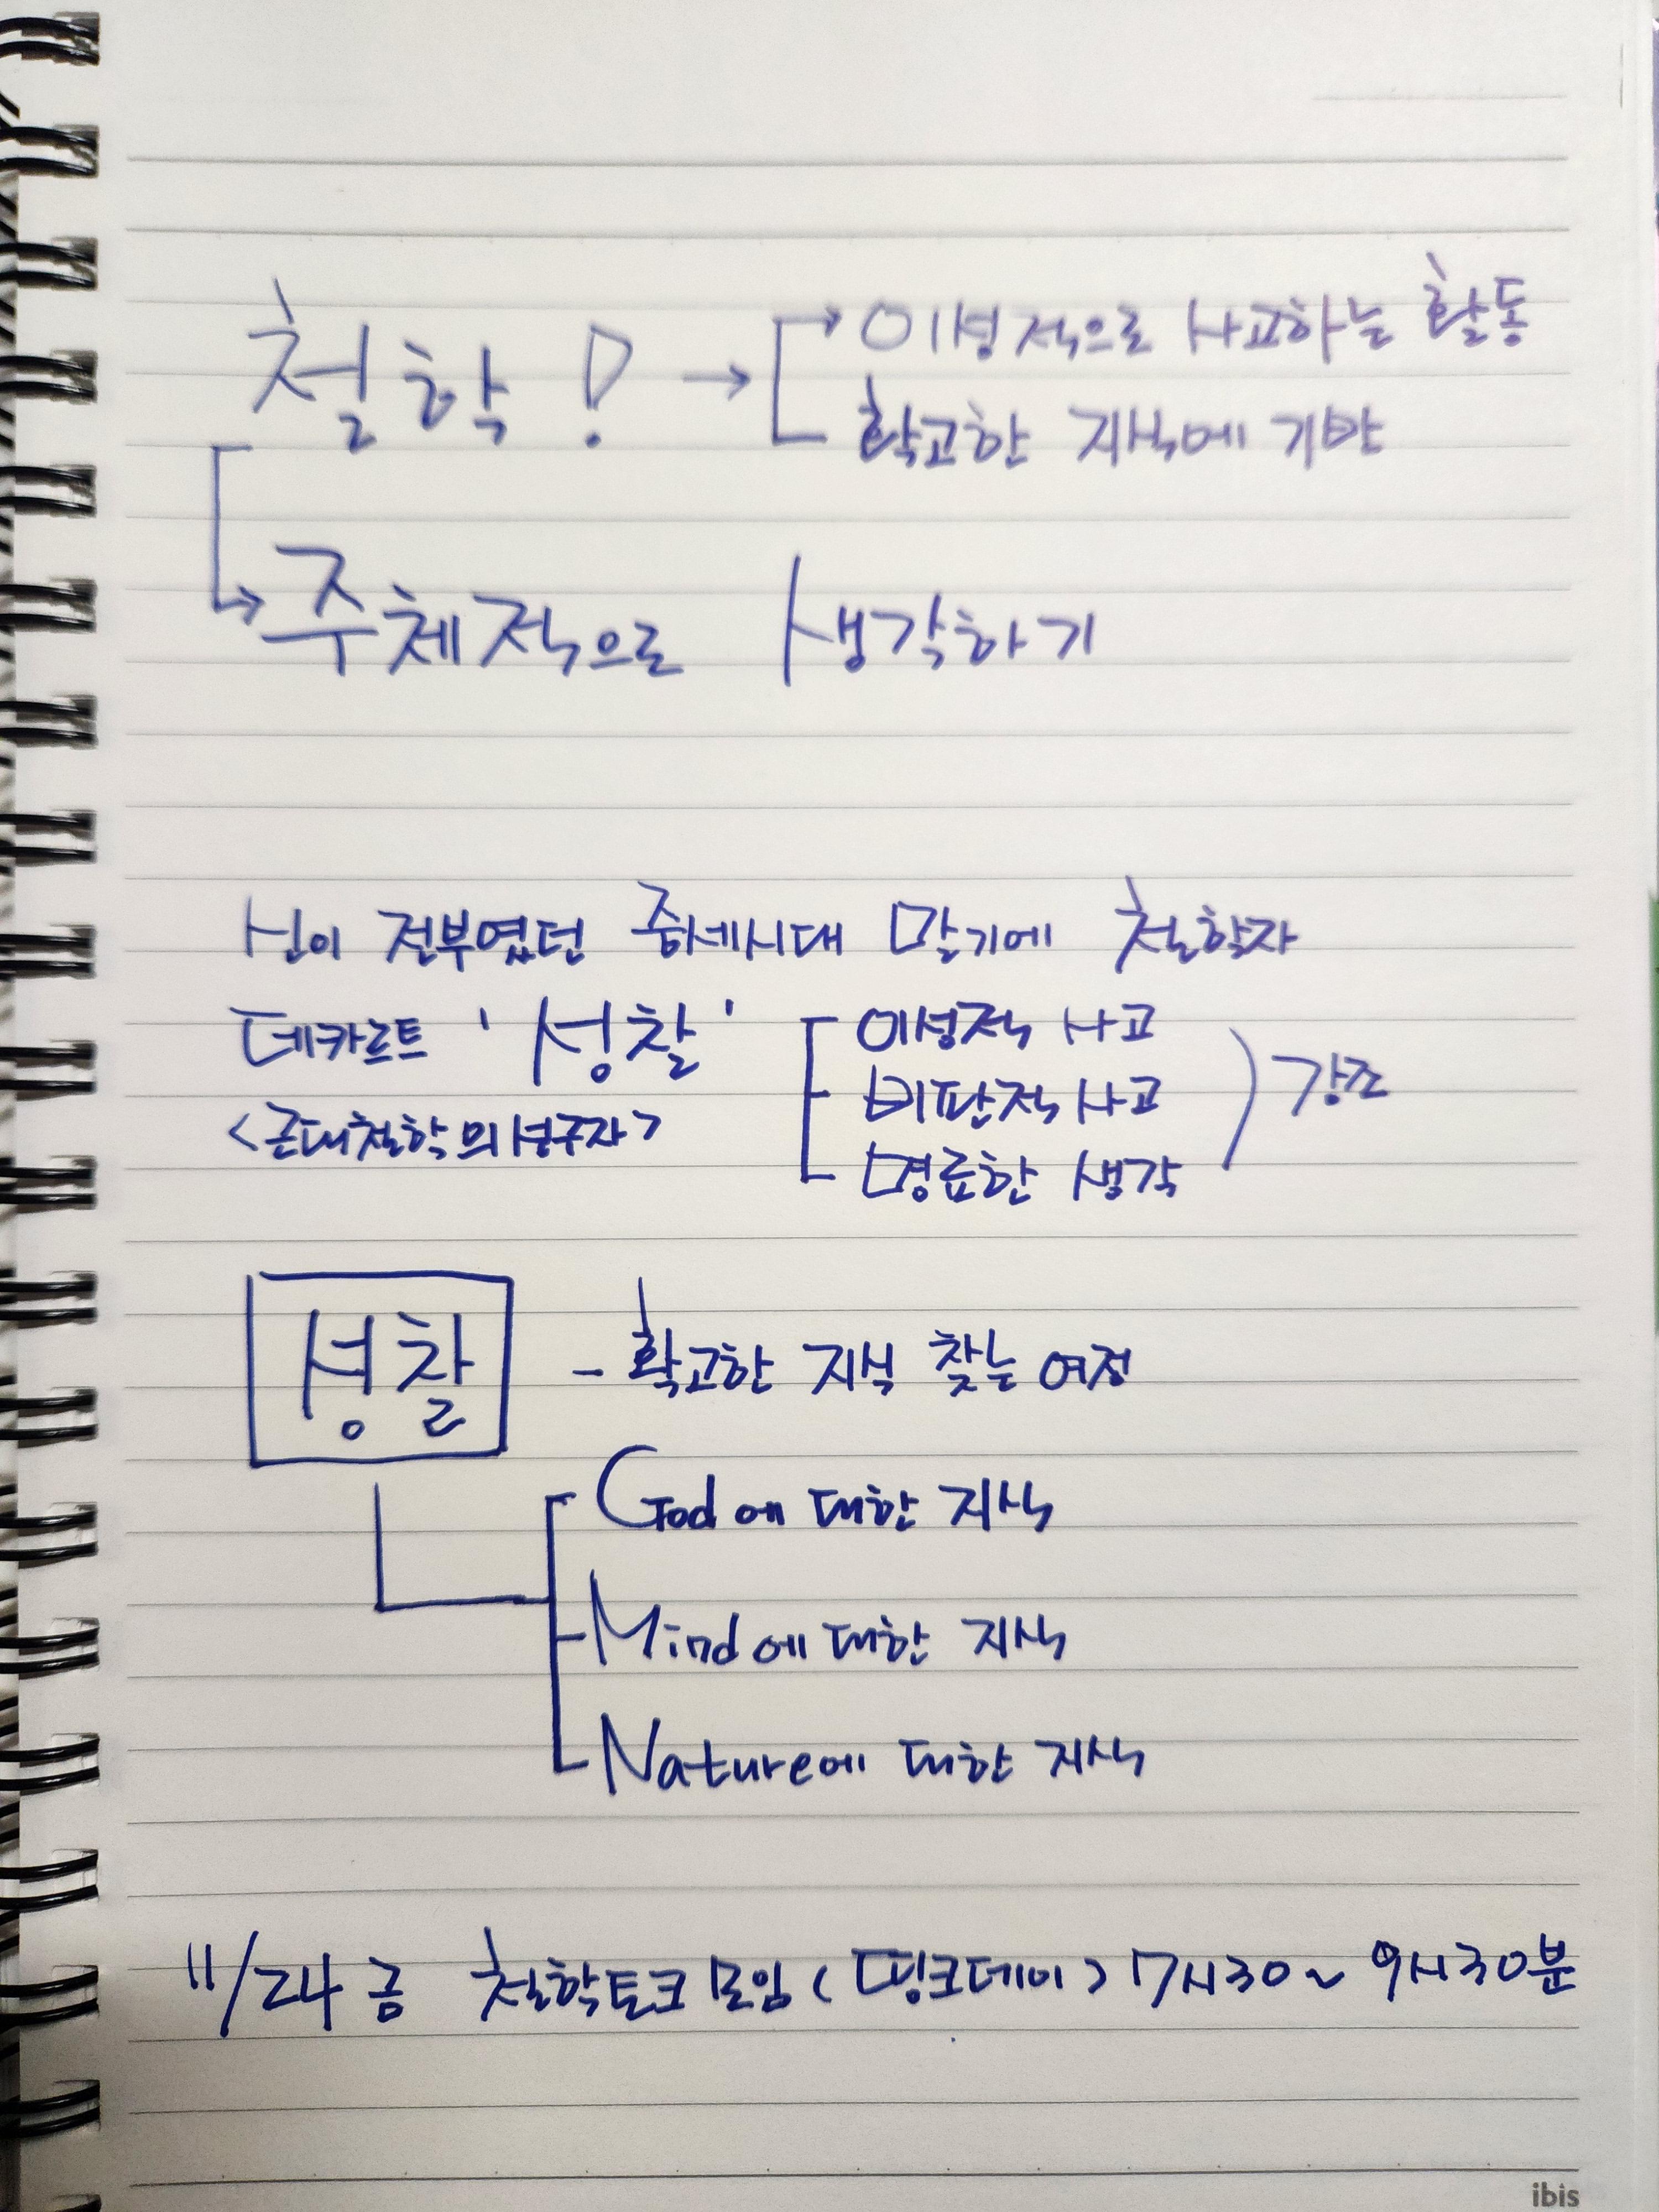 철학! → → 이성적으로 사고하는 활동
확고한 지식에 기반
→ 주체적으로 생각하기
신이 전부였던 중세시대 말기에 철학자
데카르트 '성찰' 이성적 사고
비판적 사고 강조
<근대철학의 선구자> 명료한 생각
성찰 - 확고한 지식 찾는 여정
God에 대한 지식
Mind에 대한 지식
Nature에 대한 지식
11/24 금 철학토크모임 (띵크데이) 7시30~9시30분
ibis